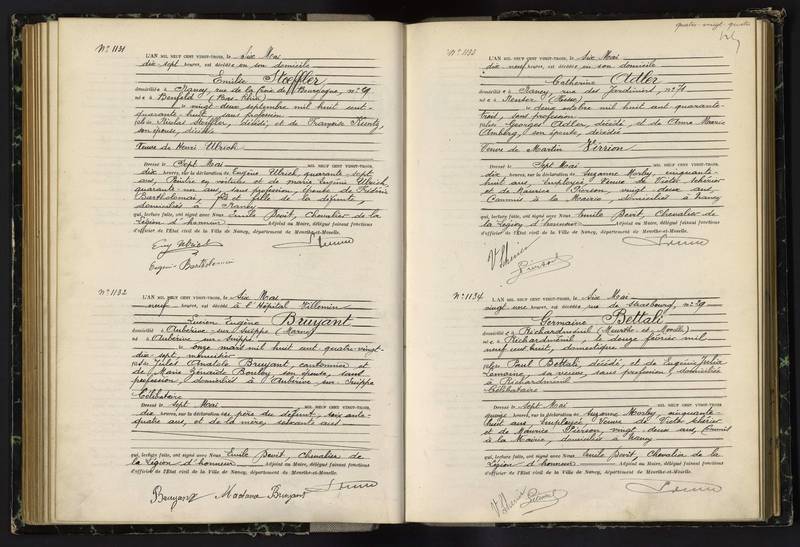 quatre-vingt-quatre
84
N° 1131
L'AN MIL NEUF CENT VINGT-TROIS, le Six Mai
dix sept heures, est décédée en son domicile
Emilie Stoeffler
domiciliée à Nancy, rue de la Croix de Bourgogne, n° 29
née à Benfeld (Bas-Rhin)
le vingt deux septembre mil huit cent
quarante huit, sans profession
fille de Nicolas Stoeffler, décédé, et de Françoise Kuntz,
son épouse, décédée
Veuve de Henri Ulrich
Devant le Sept Mai MIL NEUF CENT VINGT-TROIS,
dix heures, sur la déclaration de Eugène Ulrich, quarante sept
ans, et de Marie Eugénie Ulrich,
quarante un ans, sans profession, épouse de Frédéric
Bartholomai, fils et fille de la défunte,
domiciliés à Nancy
qui, lecture faite, ont signé avec Nous Emile Bovit, Chevalier de la
Légion d'honneur Adjoint au Maire, délégué faisant fonctions
d'officier de l'État civil de la Ville de Nancy, département de Meurthe-et-Moselle.
Eug Ulrich
Eugénie Bartholomai
N° 1132
L'AN MIL NEUF CENT VINGT-TROIS, le Six Mai
neuf heures, est décédé à l'Hôpital Villemin
Lucien Eugène Bruyant
domicilié à Aubérive sur Suippe (Marne)
né à Aubérive sur Suippe
le onze mars mil huit cent quatre-vingt-
dix sept, menuisier
fils de Jules Anatole Bruyant, cantonnier et
de Marie Zénaïde Bouloy son épouse, sans
profession, domiciliés à Aubérive sur Suippe
Célibataire
Devant le Sept Mai MIL NEUF CENT VINGT-TROIS,
dix heures, sur la déclaration du père du défunt, soixante
quatre ans, et de la mère, soixante ans
qui, lecture faite, ont signé avec Nous Emile Bovit, Chevalier de
la Légion d'honneur Adjoint au Maire, délégué faisant fonctions
d'officier de l'État civil de la Ville de Nancy, département de Meurthe-et-Moselle.
Bruyant Madame Bruyant
N° 1133
L'AN MIL NEUF CENT VINGT-TROIS, le Six Mai
dix neuf heures, est décédée en son domicile
Catherine Adler
domiciliée à Nancy, rue des Jardiniers, n° 71
née à (Hesse)
le deux octobre mil huit cent quarante-
trois, sans profession
fille de Georges Adler, décédé, et de Anna Maria
Amberg, son épouse, décédée
Veuve de Martin Verrion
Devant le Sept Mai MIL NEUF CENT VINGT-TROIS,
dix heures, sur la déclaration de Suzanne Morby, cinquante-
huit ans, employée, Veuve de Victor Schérier
et de Maurice Pierson, vingt-deux ans,
Commis à la Mairie, domiciliés à Nancy
qui, lecture faite, ont signé avec Nous Emile Bovit, Chevalier de
la Légion d'honneur Adjoint au Maire, délégué faisant fonctions
d'officier de l'État civil de la Ville de Nancy, département de Meurthe-et-Moselle.
Pierson
N° 1134
L'AN MIL NEUF CENT VINGT-TROIS, le Six Mai
vingt une heures, est décédée, rue de Strasbourg, n° 29
Germaine Bettali
domiciliée à Richardménil (Meurthe-et-Moselle)
née à Richardménil, le douze février mil
neuf cent huit, domestique
fille de Paul Bettali, décédé, et de Eugénie Julia
Lemoine, sa veuve, sans profession, domiciliée
à Richardménil
Célibataire
Devant le Sept Mai MIL NEUF CENT VINGT-TROIS,
heures, sur la déclaration de Suzanne Morby, cinquante-
huit ans, employée, Veuve de Victor Schérier
et de Maurice Pierson, vingt-deux ans, Commis
à la Mairie, domiciliés à Nancy
qui, lecture faite, ont signé avec Nous Emile Bovit, Chevalier de la
Légion d'honneur Adjoint au Maire, délégué faisant fonctions
d'officier de l'État civil de la Ville de Nancy, département de Meurthe-et-Moselle.
Pierson